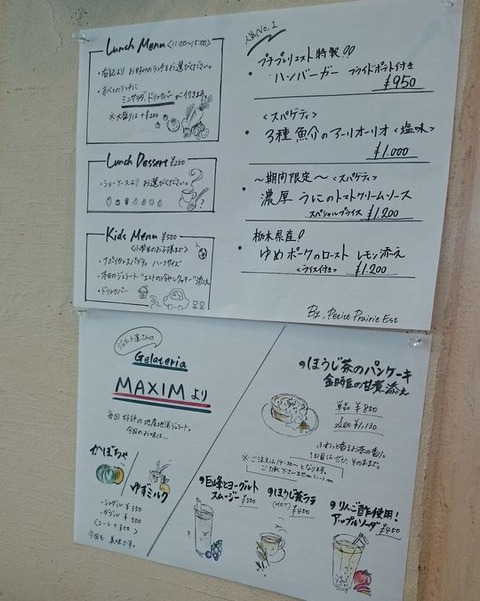 Lunch Menu <11:00~15:00>
・右記より お好みのランチをお選びください。
・すべてのランチに
ミニサラダ、ドリンクバーが付きます。
※大盛りは+¥200
Lunch Dessert ¥250
・ショーケースより お選びください。
Kids Menu ¥500
<小学生のお子様まで>
・ナポリタンスパゲティ ハーフサイズ
・ドリンクバー
人気No.1
・プチプレリエスト特製!!
ハンバーガー フライドポテト付き
¥950
<スパゲティ>
・3種魚介のアーリオーリオ<塩味>
¥1,000
～期間限定～<スパゲティ>
・濃厚 うにのトマトクリームソース
スペシャルプライス ¥1,200
栃木県産!
・ゆめポークのロースト レモン添え
<ライス付き> ¥1,200
By. Petite Prairie Est
ジェラート屋さんの
Gelateria
MAXIMより
毎回好評の地産地消ジェラート。
今回のお味は…
かぼちゃ
ゆずミルク
・シングル ¥350
・ダブル ¥500
今回も美味です。
ほうじ茶のパンケーキ
金時豆の甘煮添え
単品 ¥850
set ¥1,130
ふわっと香るお茶の香り。
1口目はぜひ、そのままで。
※ご注文は14:30~となります。
ご了承下さいませ
巨峰とヨーグルト
スムージー
ほうじ茶ラテ
(HOT)
りんご酢使用!
アップルソーダ
¥450